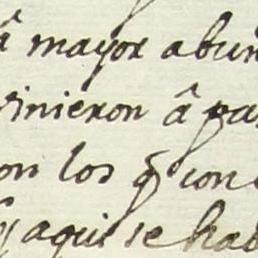 â mayor abun
vinieron â pa
on los q̃ con
y aqui se hab